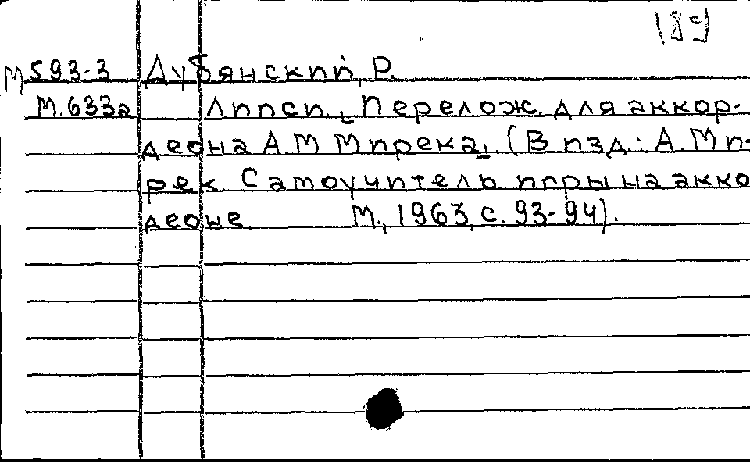 189
М593-3 Дубянский, Р.
М.633а Липси. Перелож. для аккор-
деона А.М Мирека. (В изд.: А.Ми-
рек Самоучитель игры на акко
деоне М., 1963, с. 93-94).